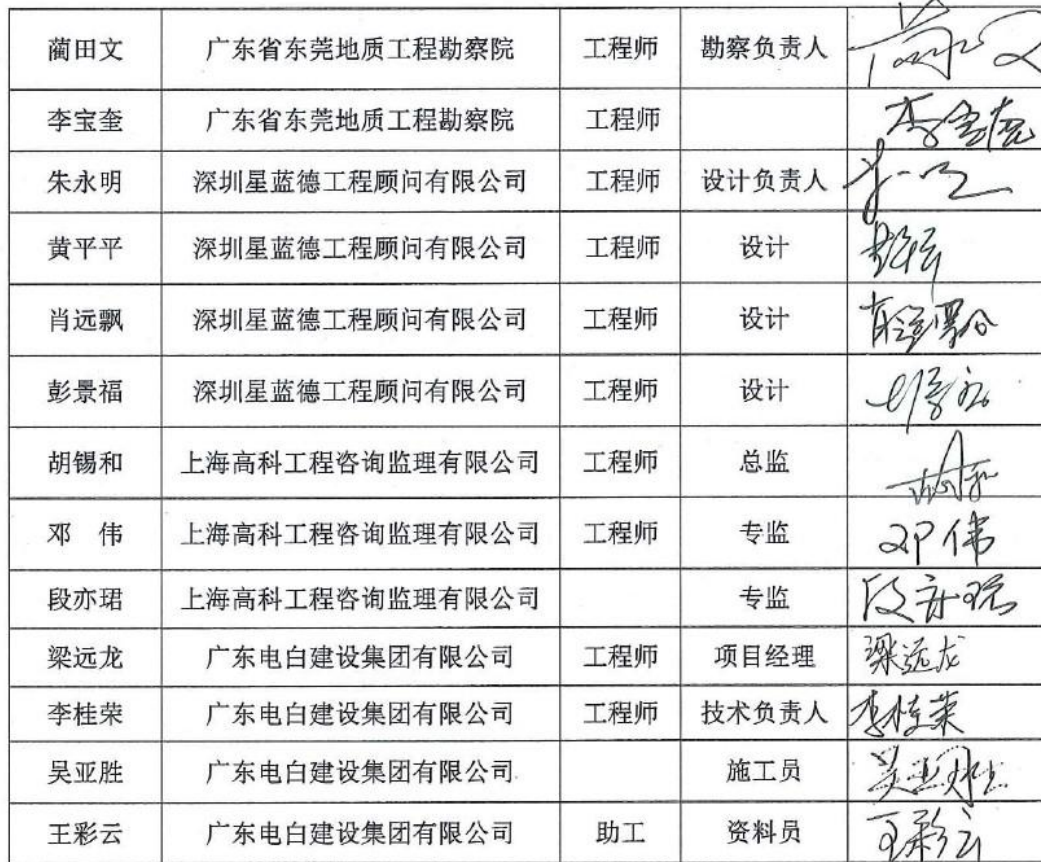 蔺田文 广东省东莞地质工程勘察院 工程师 勘察负责人
李宝奎 广东省东莞地质工程勘察院 工程师 李宝奎
朱永明 深圳星蓝德工程顾问有限公司 工程师 设计负责人
黄平平 深圳星蓝德工程顾问有限公司 工程师 设计
肖远飘 深圳星蓝德工程顾问有限公司 工程师 设计 肖远飘
彭景福 深圳星蓝德工程顾问有限公司 工程师 设计
胡锡和 上海高科工程咨询监理有限公司 工程师 总监
邓 伟 上海高科工程咨询监理有限公司 工程师 专监 邓伟
段亦珺 上海高科工程咨询监理有限公司 专监 段亦珺
梁远龙 广东电白建设集团有限公司 工程师 项目经理 梁远龙
李桂荣 广东电白建设集团有限公司 工程师 技术负责人 李桂荣
吴亚胜 广东电白建设集团有限公司 施工员 吴亚胜
王彩云 广东电白建设集团有限公司 助工 资料员 王彩云